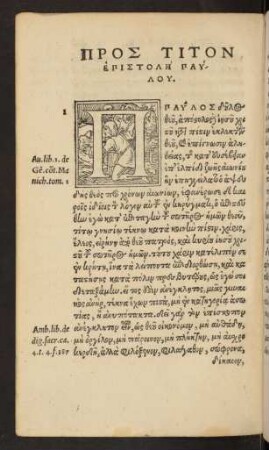 ΠΡΟΣ ΤΙΤΟΝ
ἐπιστολὴ παύ
λου.
1
ΠΑΥΛΟΣ δοῦλος
θεοῦ, ἀπόστολος
ἰησοῦ χριστοῦ
κατὰ πίστιν ἐκλεκτῶν
θεοῦ,
ἀληθείας, τῆς κατ' εὐσέβειαν
ἐπ' ἐλπίδι ζωῆς αἰωνίου,
ἣν ἐπηγγείλατο ὁ ἀψευ
δὴς θεὸς πρὸ χρόνων αἰωνίων, ἐφανέρωσε δὲ και
ροῖς ἰδίοις τὸν λόγον αὐτοῦ ἐν κηρύγματι, ὃ ἐπιστεύ
θην ἐγὼ κατ' ἐπιταγὴν τοῦ σωτῆρος ἡμῶν θεοῦ,
τίτῳ γνησίῳ τέκνῳ κατὰ κοινὴν πίστιν, χάρις,
ἔλεος, εἰρήνη ἀπὸ θεοῦ πατρὸς, καὶ κυρίου ἰησοῦ χρι
στοῦ τοῦ σωτῆρος ἡμῶν. τούτου χάριν κατέλιπόν σε
ἐν κρήτῃ, ἵνα τὰ λείποντα ἐπιδιορθώσῃ, καὶ κα
ταστήσῃς κατὰ πόλιν πρεσβυτέρους, ὡς ἐγώ σοι
διεταξάμην. εἴ τις ἐστὶν ἀνέγκλητος, μιᾶς γυναι
κὸς ἀνὴρ, τέκνα ἔχων πιστὰ, μὴ ἐν κατηγορίᾳ ἀσω
τίας, ἢ ἀνυπότακτα. δεῖ γὰρ τὸν ἐπίσκοπον
ἀνέγκλητον εἶναι, ὡς θεοῦ οἰκονόμον, μὴ αὐθάδη,
μὴ ὀργίλον, μὴ πάροινον, μὴ πλήκτην, μὴ αἰσχρο
κερδῆ, ἀλλὰ φιλόξενον, φιλάγαθον, σώφρονα,
δίκαιον,
Au. lib. 1. de
Ge. cōt. Ma
nich. tom. 1
Amb. lib. de
dig. sacer. ca.